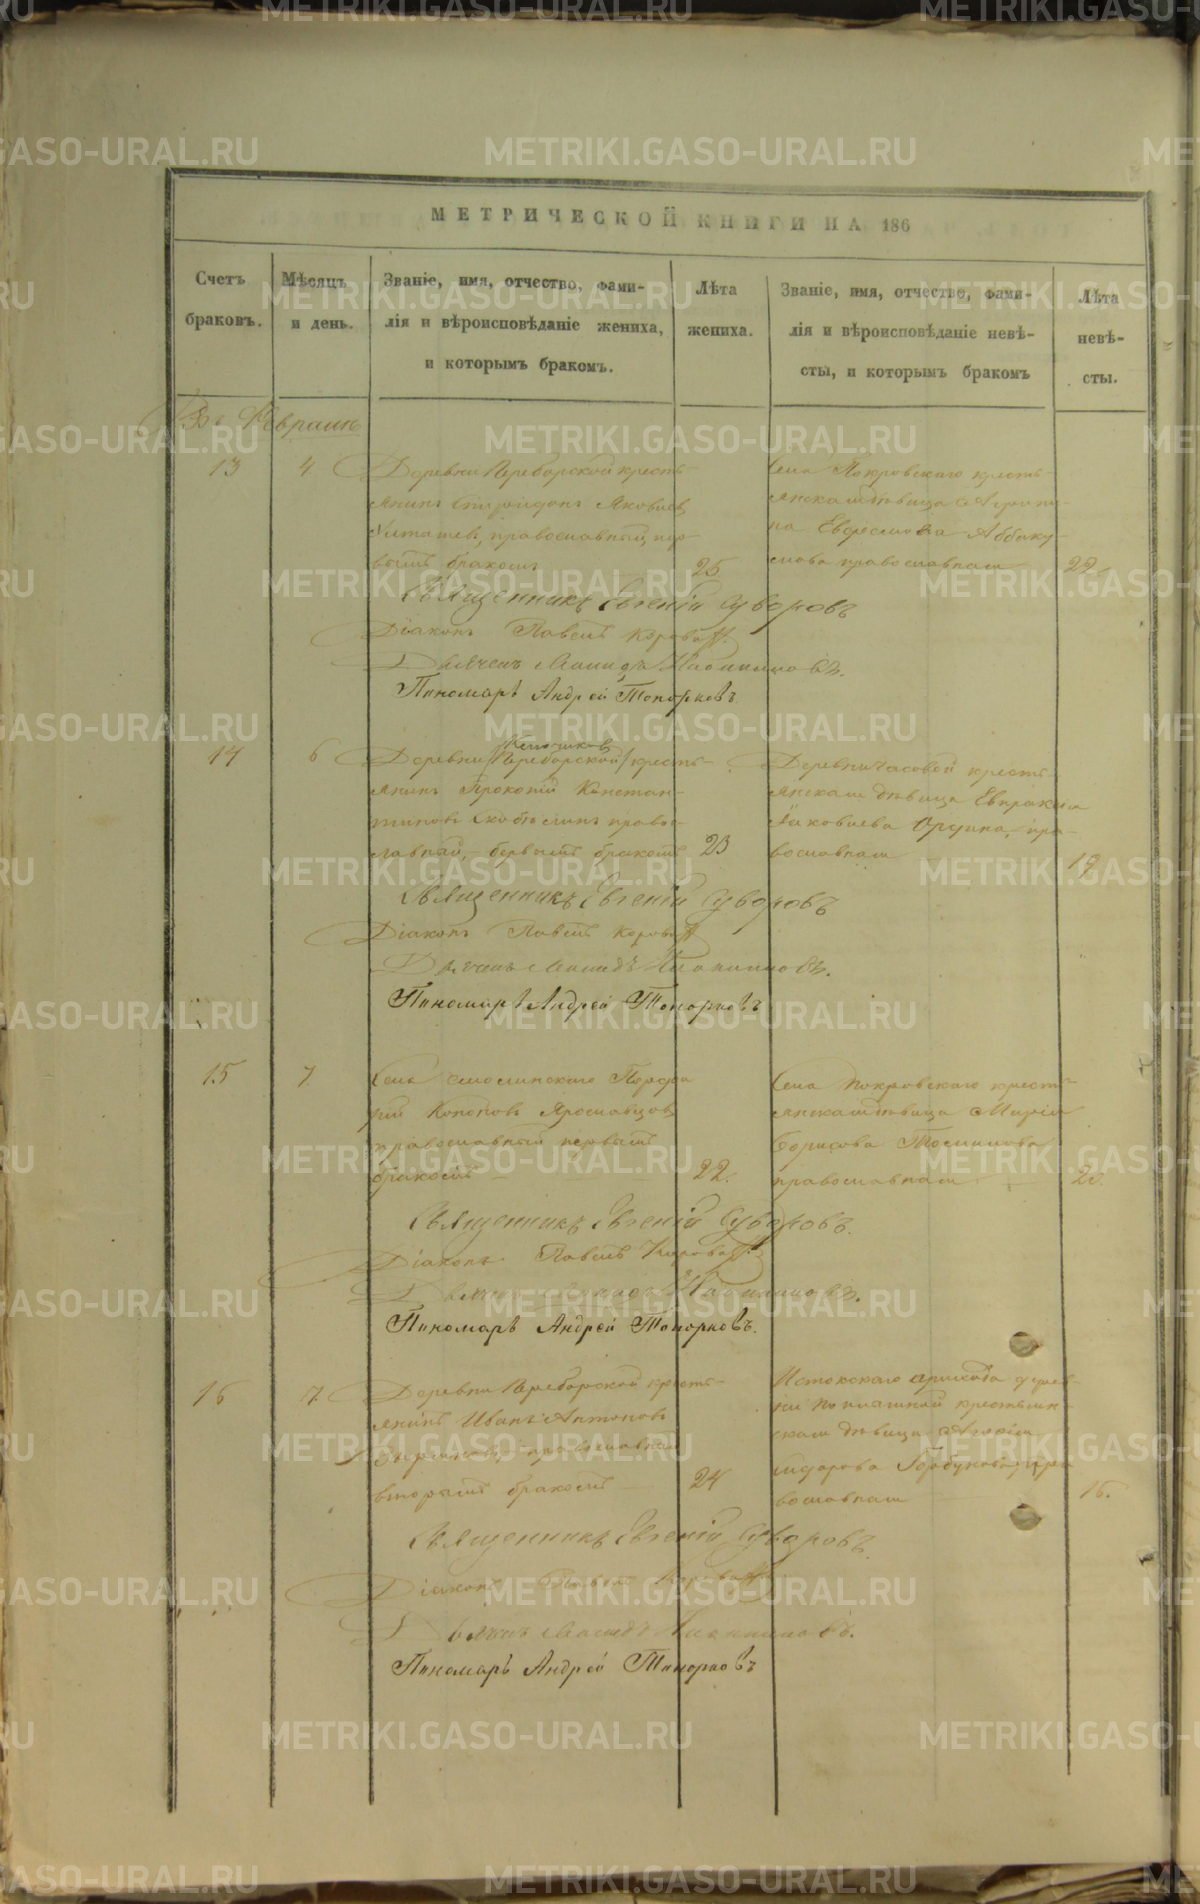 МЕТРИЧЕСКОЙ КНИГИ НА 186
Счетъ браковъ.
Мѣсяцъ и день.
Званіе, имя, отчество, фами-
лія и вѣроисповѣданіе жениха,
и которымъ бракомъ.
Лѣта жениха.
Званіе, имя, отчество, фами-
лія и вѣроисповѣданіе невѣ-
сты, и которымъ бракомъ
Лѣта невѣ-
сты.
Въ Февралѣ
13
4
Деревни Переборской кресть-
янинъ Спиридонъ Яковлевъ
православный, пер-
вымъ бракомъ
25
Села Покровскаго кресть-
янская дѣвица Агрипи-
на Евфимова Аббаку-
мова православная
22.
Священникъ Евгеній Суворовъ
Діаконъ Павелъ
Дьячекъ
Пономарь Андрей Топорковъ.
14
6
Деревни Переборской кресть-
янинъ Прокопій Констан-
тиновъ правос-
лавный, первымъ бракомъ
23
Деревни Часовой кресть-
янская дѣвица Евпраксія
Яковлева пра-
вославная
19
Священникъ Евгеній Суворовъ
Діаконъ Павелъ
Дьячекъ
Пономарь Андрей Топорковъ
15
7
Села Смолинскаго Порфи-
рій Кононовъ Ярославцовъ
православный первымъ
бракомъ
22.
Села Покровскаго кресть-
янская дѣвица Марія
Борисова
православная
Священникъ Евгеній Суворовъ.
Діаконъ Павелъ
Дьячекъ
Пономарь Андрей Топорковъ.
16
7.
Деревни Переборской кресть-
янинъ Иванъ Антоновъ
православный
вторымъ бракомъ
24
Истокскаго прихода дерев-
ни крестьян-
ская дѣвица
Горбунова, пра-
вославная
16.
Священникъ Евгеній Суворовъ.
Діаконъ Павелъ
Дьячекъ
Пономарь Андрей Топорковъ
METRIKI.GASO-URAL.RU